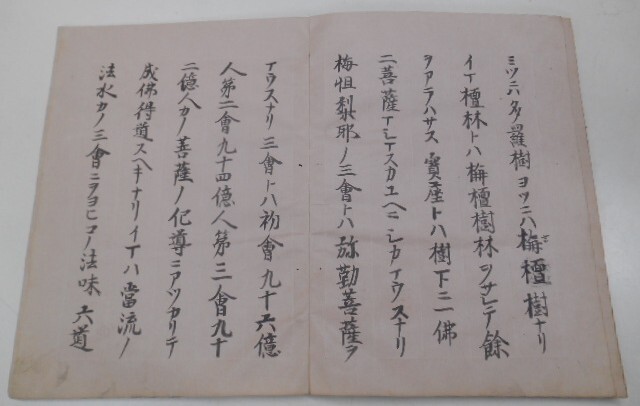 ミツニハ多羅樹ヨツニハ栴檀樹ナリ
イマ檀林トハ栴檀樹林ヲサシテ餘
ヲアラハサス寳座トハ樹下ニ佛
菩薩マシマスカユヘニシカマウスナリ
梅怛梨耶ノ三會トハ弥勒菩薩ヲ
マウスナリ三會トハ初會九十六億
人第二會九十四億人第三會九十
二億人カノ菩薩ノ化導ニアツカリテ
成佛得道スヘキナリイマハ當流ノ
法水カノ三會ニヲヨヒコノ法味六道